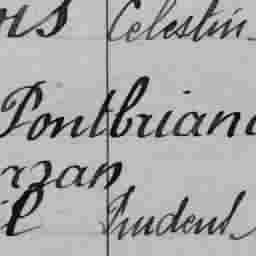 is Celestin
Pontbriand
rzan
il Prudent